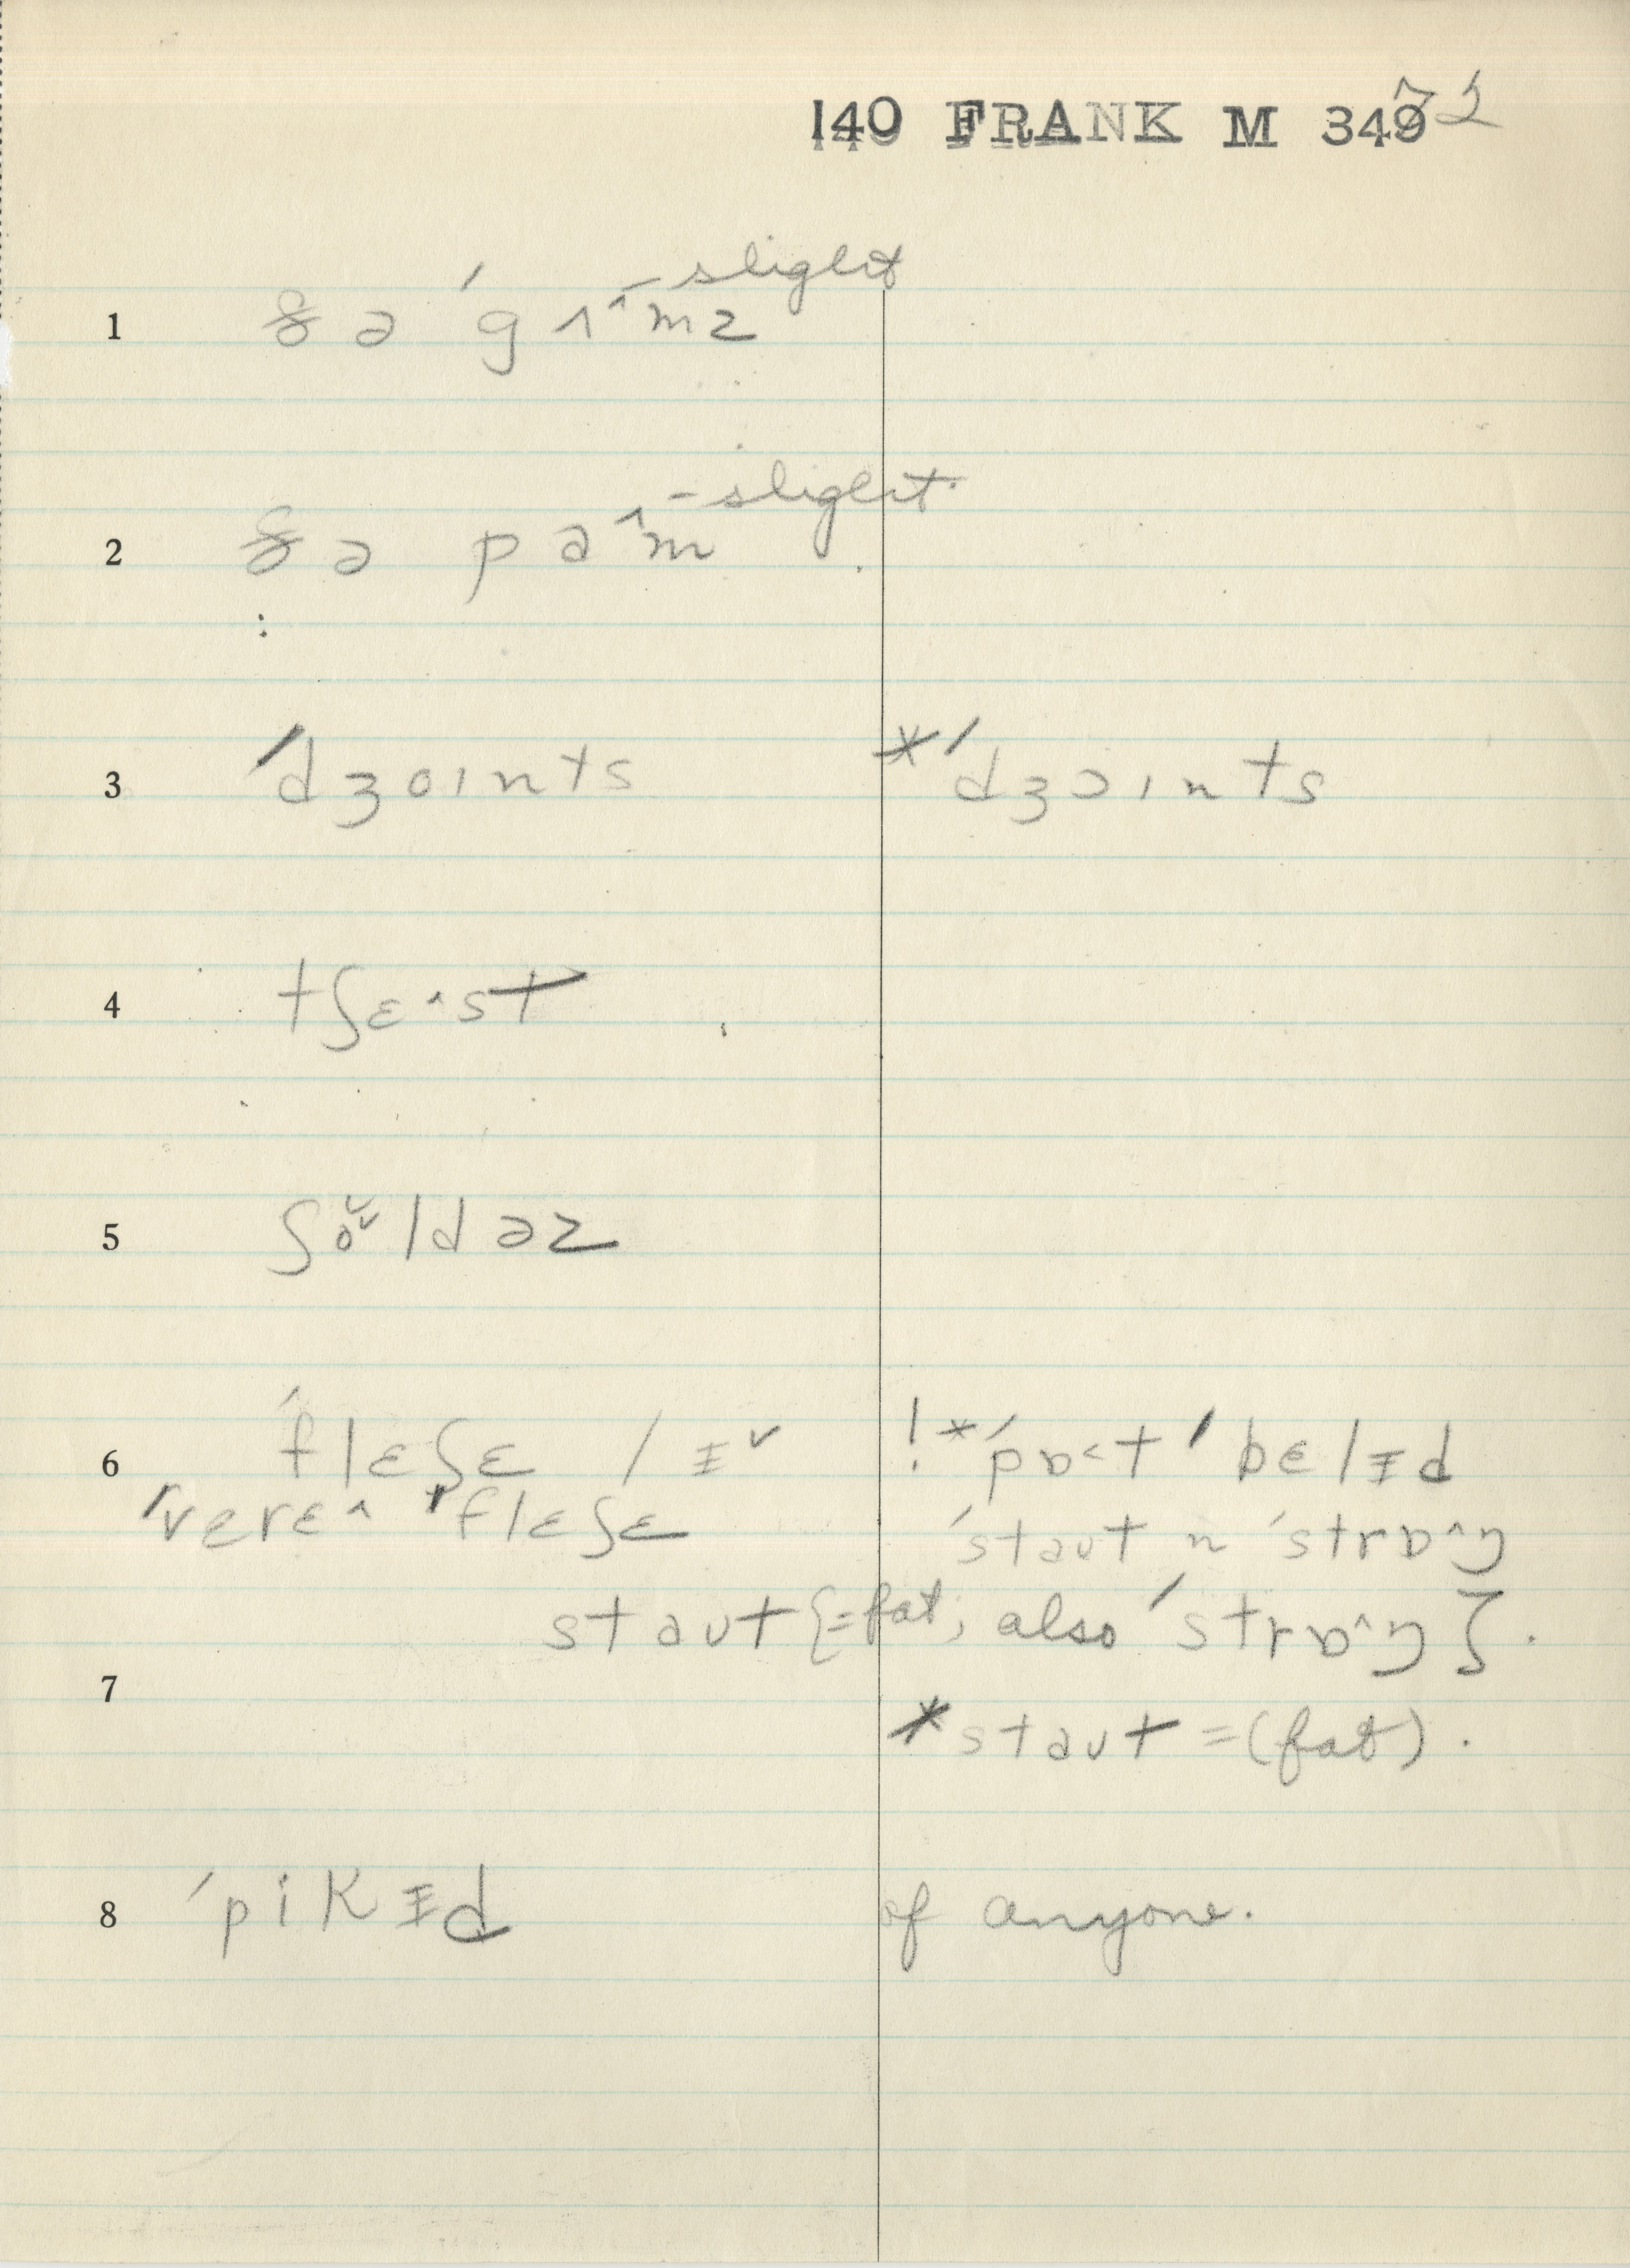 140 FRANK M 349 72
slight
1 ðə ˈgʌ^mz
slight
2 ðə pɑ^m
3 ˈdʒoɪnts *ˈdʒɔɪnts
4 tʃɛ^st
5 ʃo̬ˇldəz
6 ˈflɛʃɛ / ɪˇ !*ˈpɒ<t ˈbɛlɪd
ˈvɛrɛ^ ˈflɛʃɛ ˈstaut n ˈstrɒ^ŋ
staut {=fat, also ˈstrɒ^ŋ}.
7
*staut =(fat).
8 ˈpikɪd of anyone.